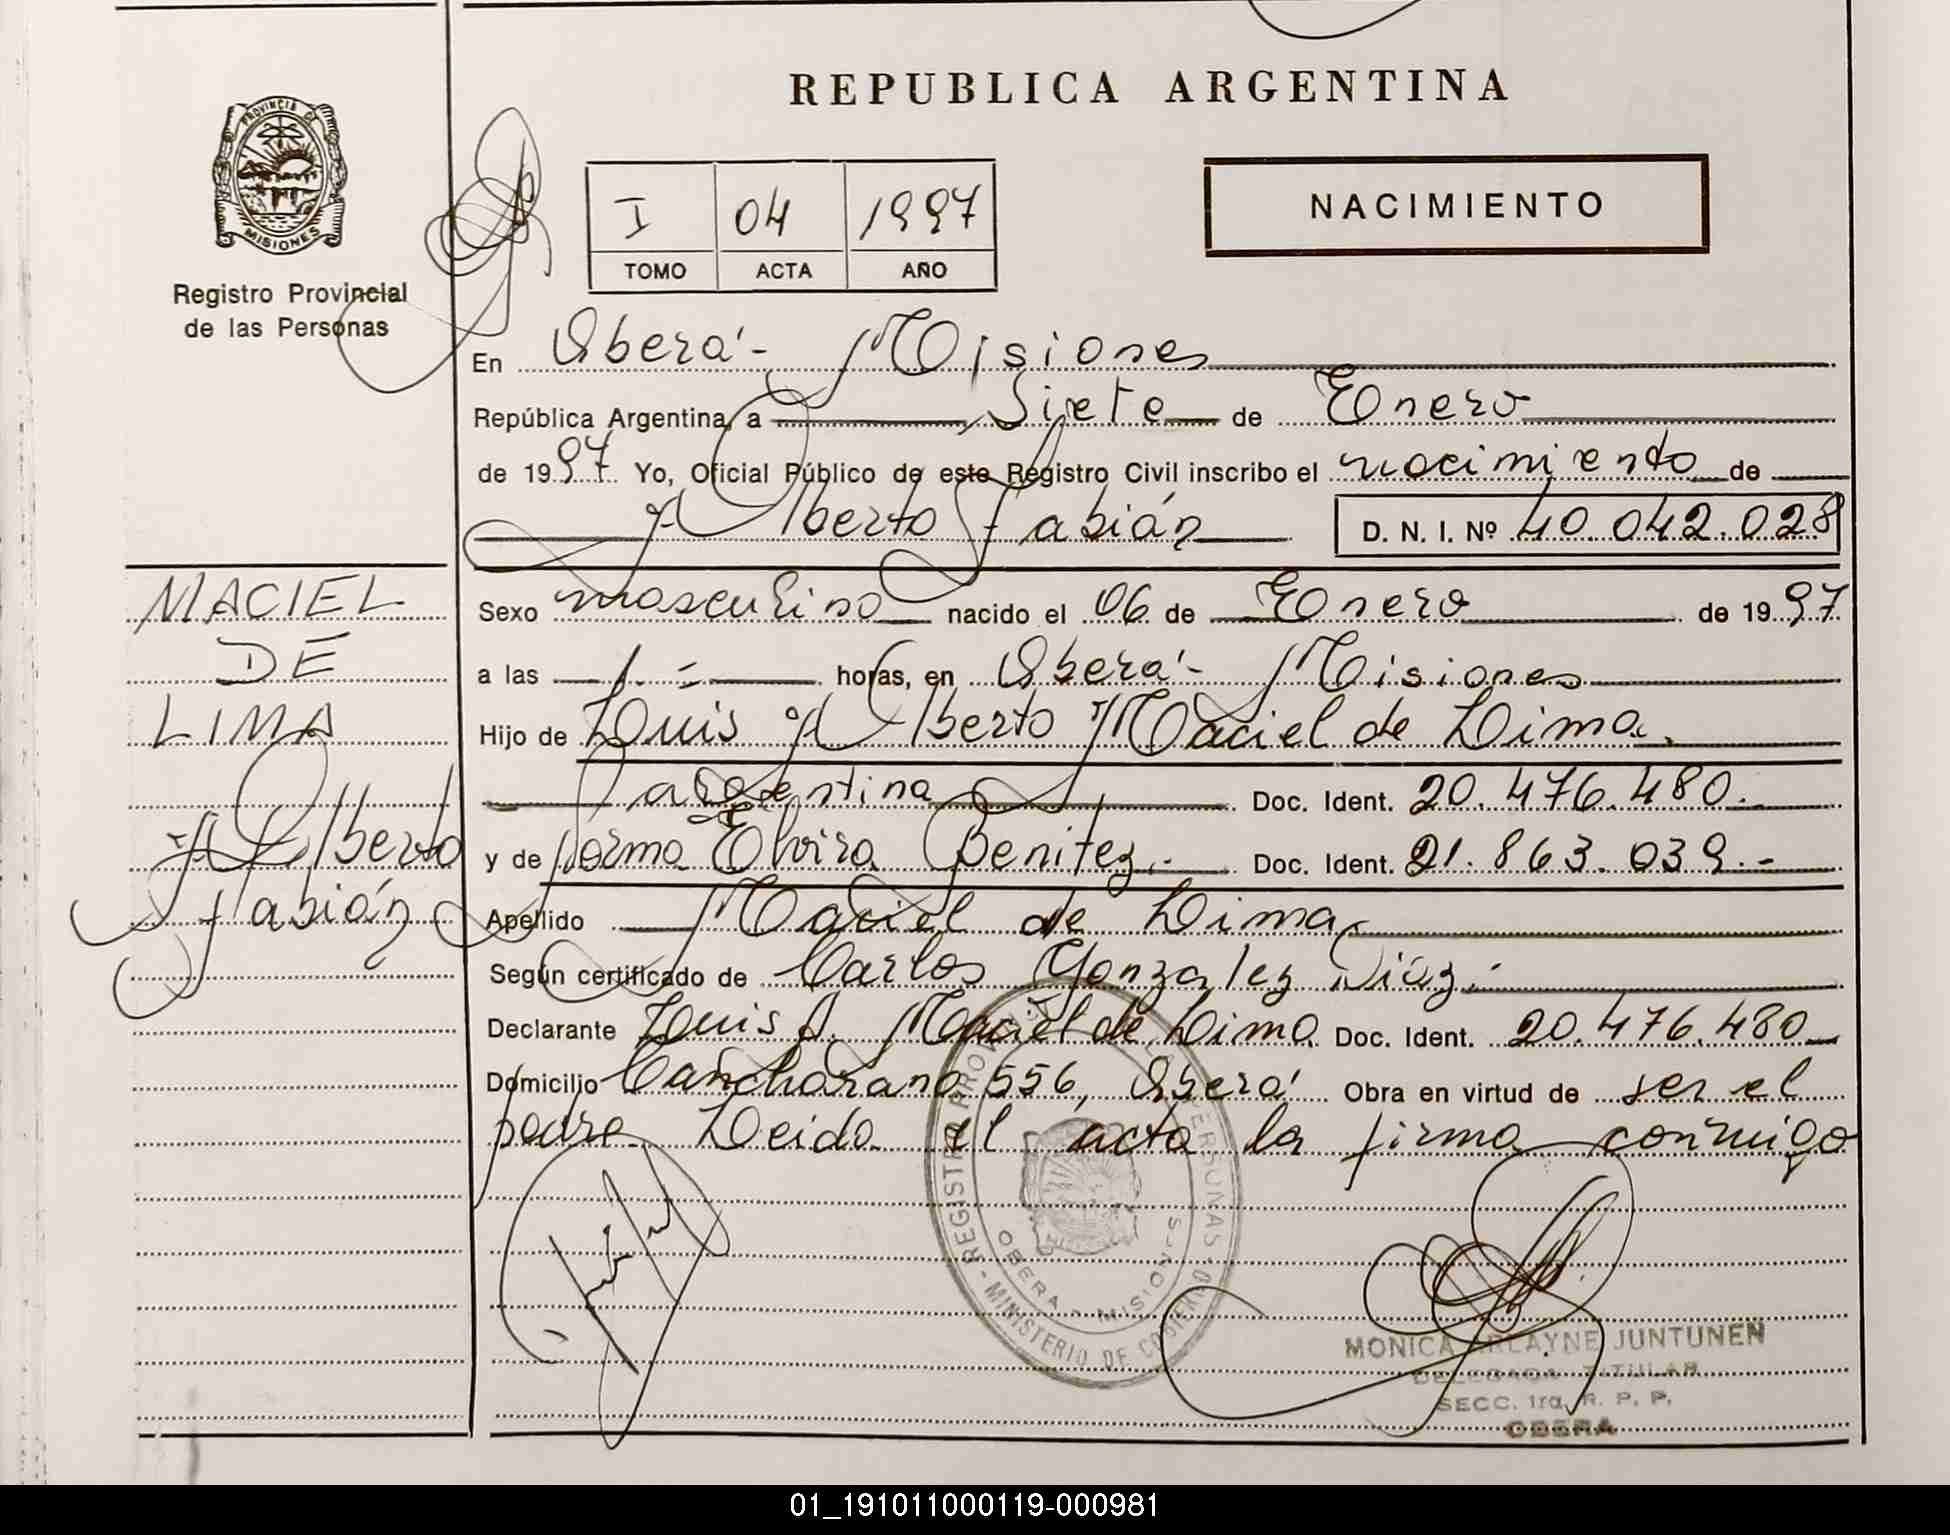 REPUBLICA ARGENTINA
PROVINCIA DE MISIONES
Registro Provincial
de las Personas
I 04 1997
TOMO ACTA AÑO
NACIMIENTO
En Oberá - Misiones
República Argentina, a Siete de Enero
de 1997 Yo, Oficial Público de este Registro Civil inscribo el nacimiento de
Alberto Fabián D. N. I. Nº 40.042.028
MACIEL
DE
LIMA
Alberto
Fabián
Sexo masculino nacido el 06 de Enero de 1997
a las 1.- horas, en Oberá - Misiones
Hijo de Luis Alberto Maciel de Lima.
argentina Doc. Ident. 20.476.480.-
y de Norma Elvira Benitez.- Doc. Ident. 21.863.039.-
Apellido Maciel de Lima
Según certificado de Carlos Gonzalez Díaz.-
Declarante Luis A. Maciel de Lima Doc. Ident. 20.476.480
Domicilio 556, Oberá Obra en virtud de ser el
padre Leida el acta la firma conmigo
REGISTRO PROVINCIAL DE LAS PERSONAS - MINISTERIO DE GOBIERNO
OBERA - MISIONES
MONICA ARLAYNE JUNTUNEN
DELEGADA TITULAR
SECC. 1ra. R. P. P.
OBERA
01_191011000119-000981